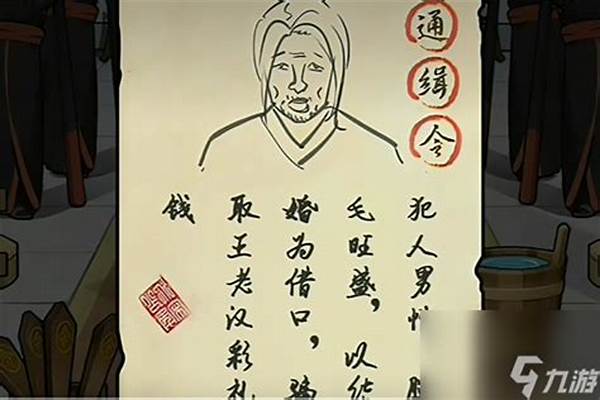 通缉令
犯人男性
毛旺盛，以结
婚为借口，骗
取王老汉彩礼
钱
九游